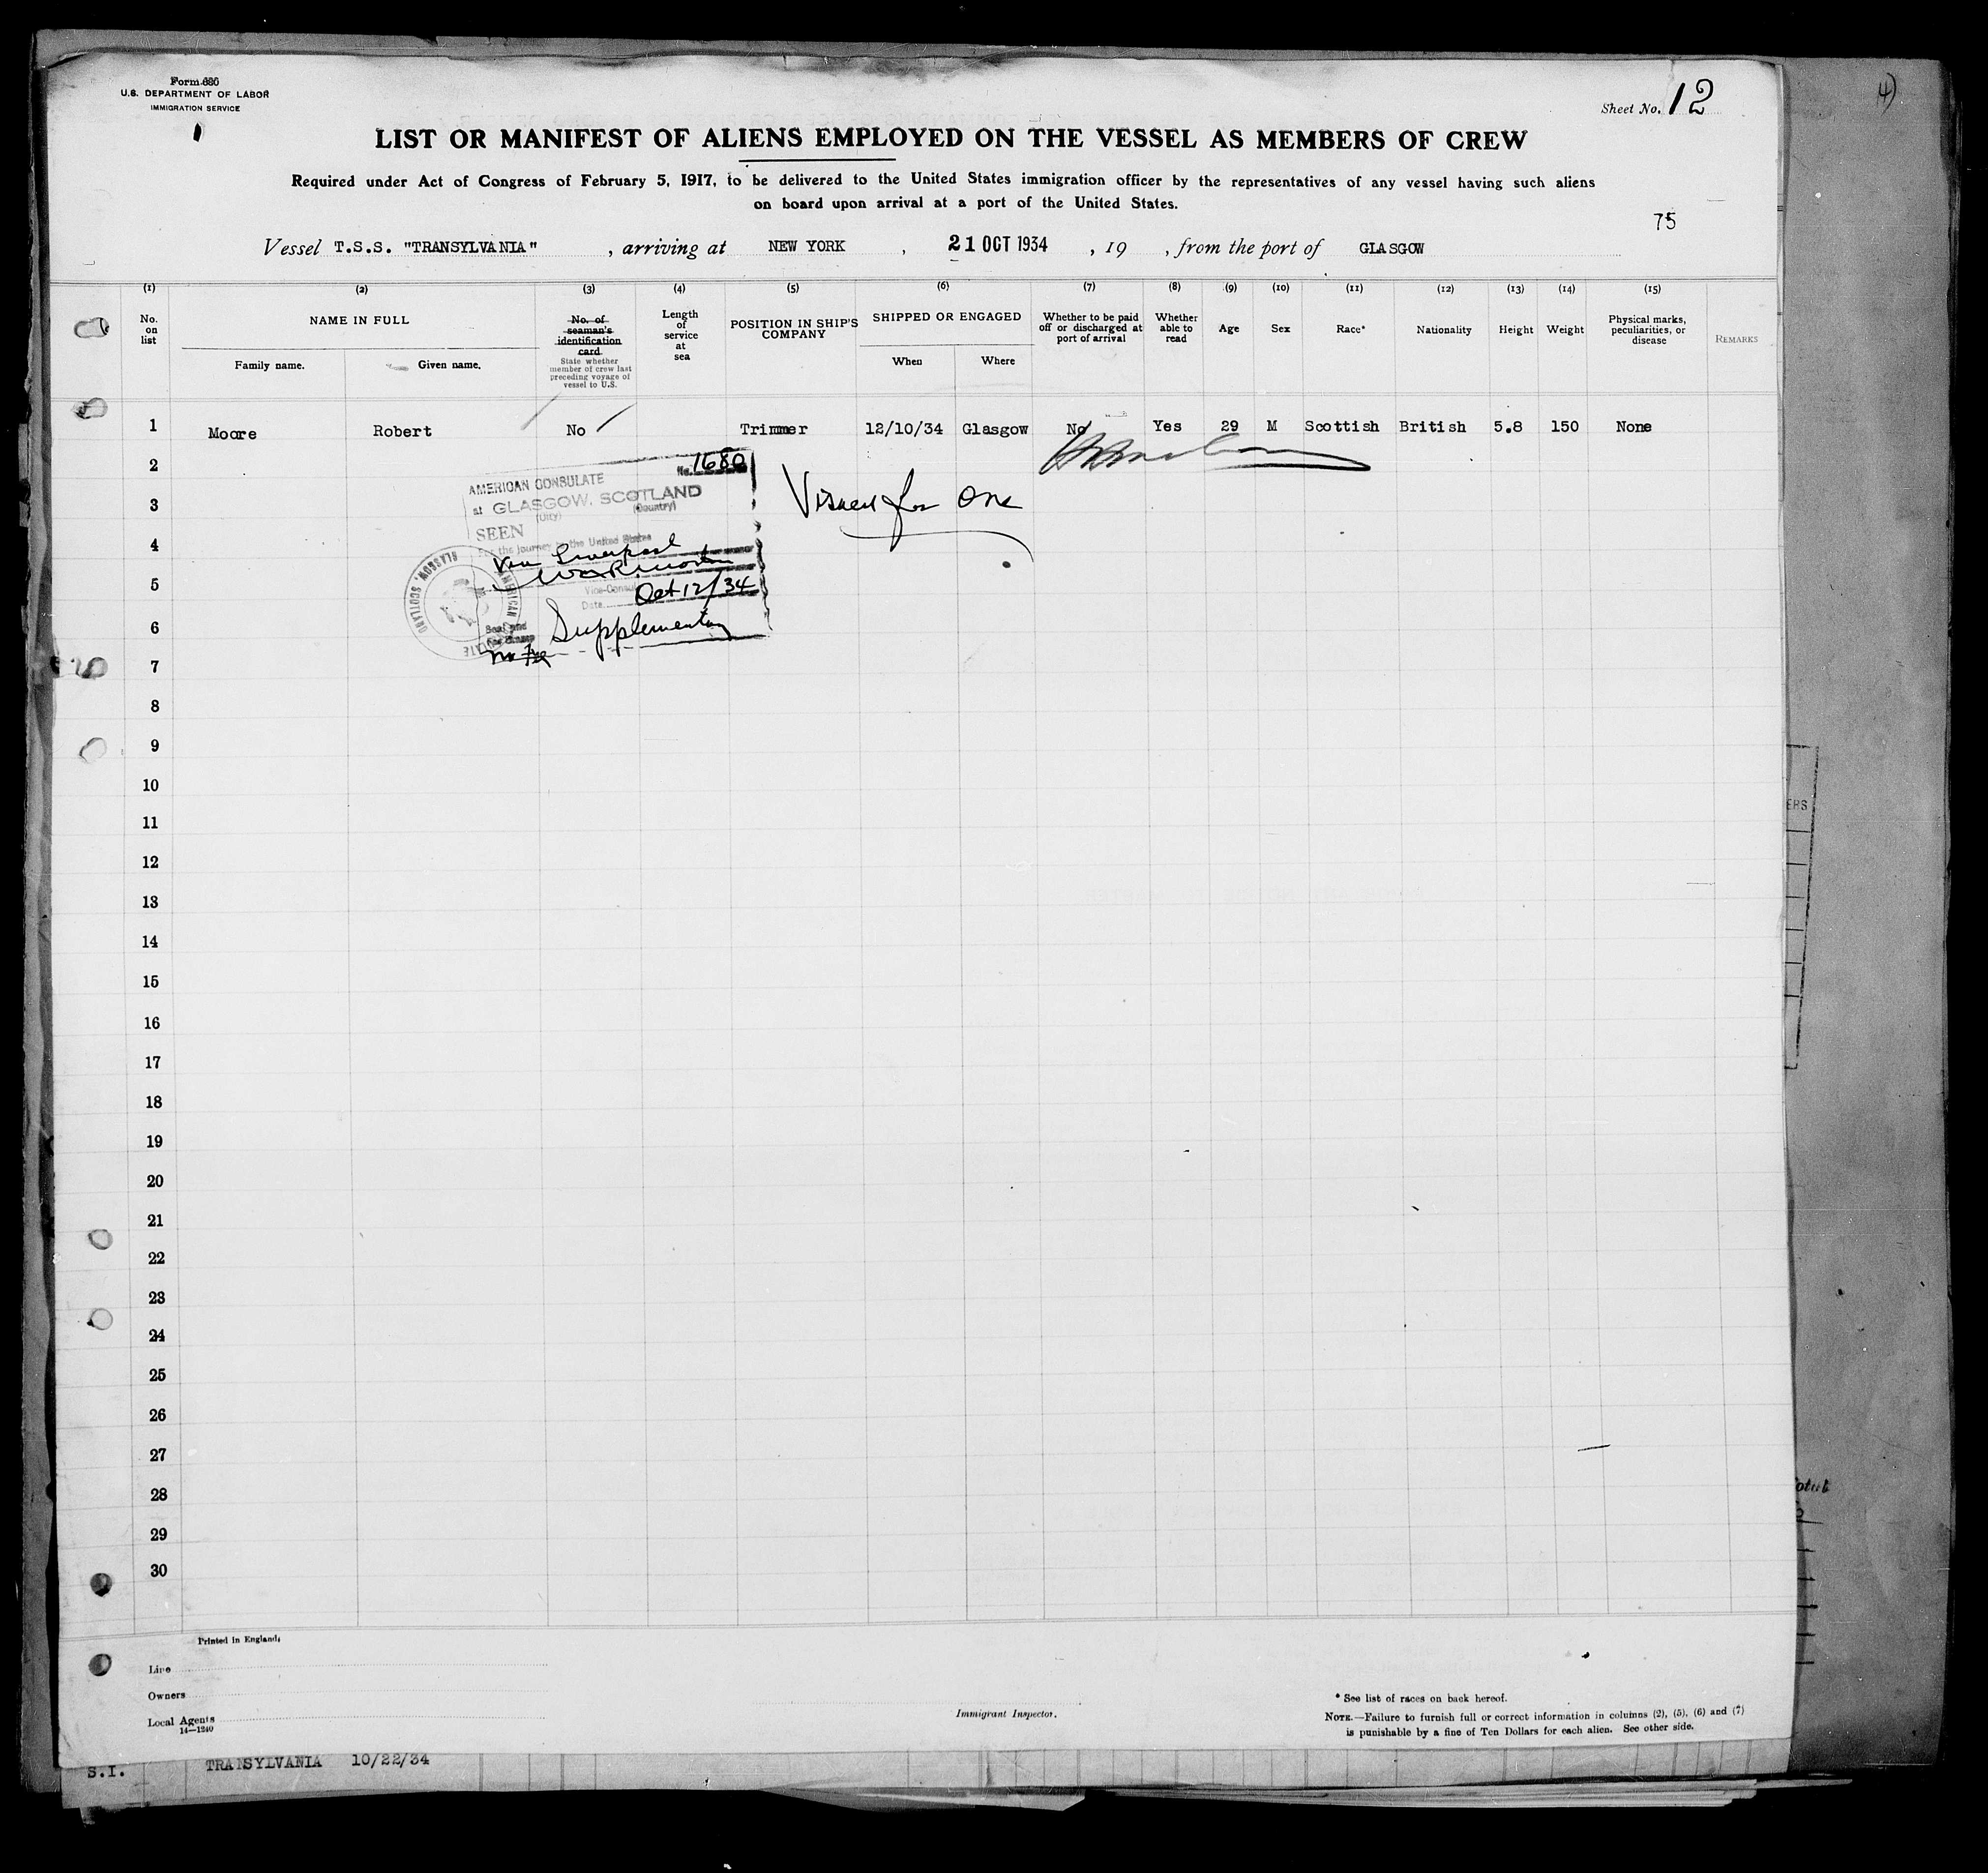 Form 680
U.S. DEPARTMENT OF LABOR
IMMIGRATION SERVICE
Sheet No. 12
4)
LIST OR MANIFEST OF ALIENS EMPLOYED ON THE VESSEL AS MEMBERS OF CREW
Required under Act of Congress of February 5, 1917, to be delivered to the United States immigration officer by the representatives of any vessel having such aliens
on board upon arrival at a port of the United States.
75
Vessel T.S.S. "TRANSYLVANIA" , arriving at NEW YORK , 21 OCT 1934 , 19 , from the port of GLASGOW
(1) (2) (3) (4) (5) (6) (7) (8) (9) (10) (11) (12) (13) (14) (15)
No. on list
NAME IN FULL
Family name. Given name.
No. of seaman's identification card.
State whether member of crew last preceding voyage of vessel to U.S.
Length of service at sea
POSITION IN SHIP'S COMPANY
SHIPPED OR ENGAGED
When Where
Whether to be paid off or discharged at port of arrival
Whether able to read
Age
Sex
Race*
Nationality
Height
Weight
Physical marks, peculiarities, or disease
REMARKS
1 Moore Robert No Trimmer 12/10/34 Glasgow No Yes 29 M Scottish British 5.8 150 None
2
3
4
5
6
7
8
9
10
11
12
13
14
15
16
17
18
19
20
21
22
23
24
25
26
27
28
29
30
No. 1680
AMERICAN CONSULATE
at GLASGOW, SCOTLAND
(City) (Country)
SEEN
For the journey to the United States
via Liverpool
Vice-Consul
Date Oct 12/34
Seal and
Fee Stamp
Supplementary
No Fee
GLASGOW, SCOTLAND
Visaed for One
ERS
otal
Printed in England.
Line
Owners
Local Agents
14—1240
Immigrant Inspector.
* See list of races on back hereof.
NOTE.—Failure to furnish full or correct information in columns (2), (5), (6) and (7)
is punishable by a fine of Ten Dollars for each alien. See other side.
S.I. TRANSYLVANIA 10/22/34